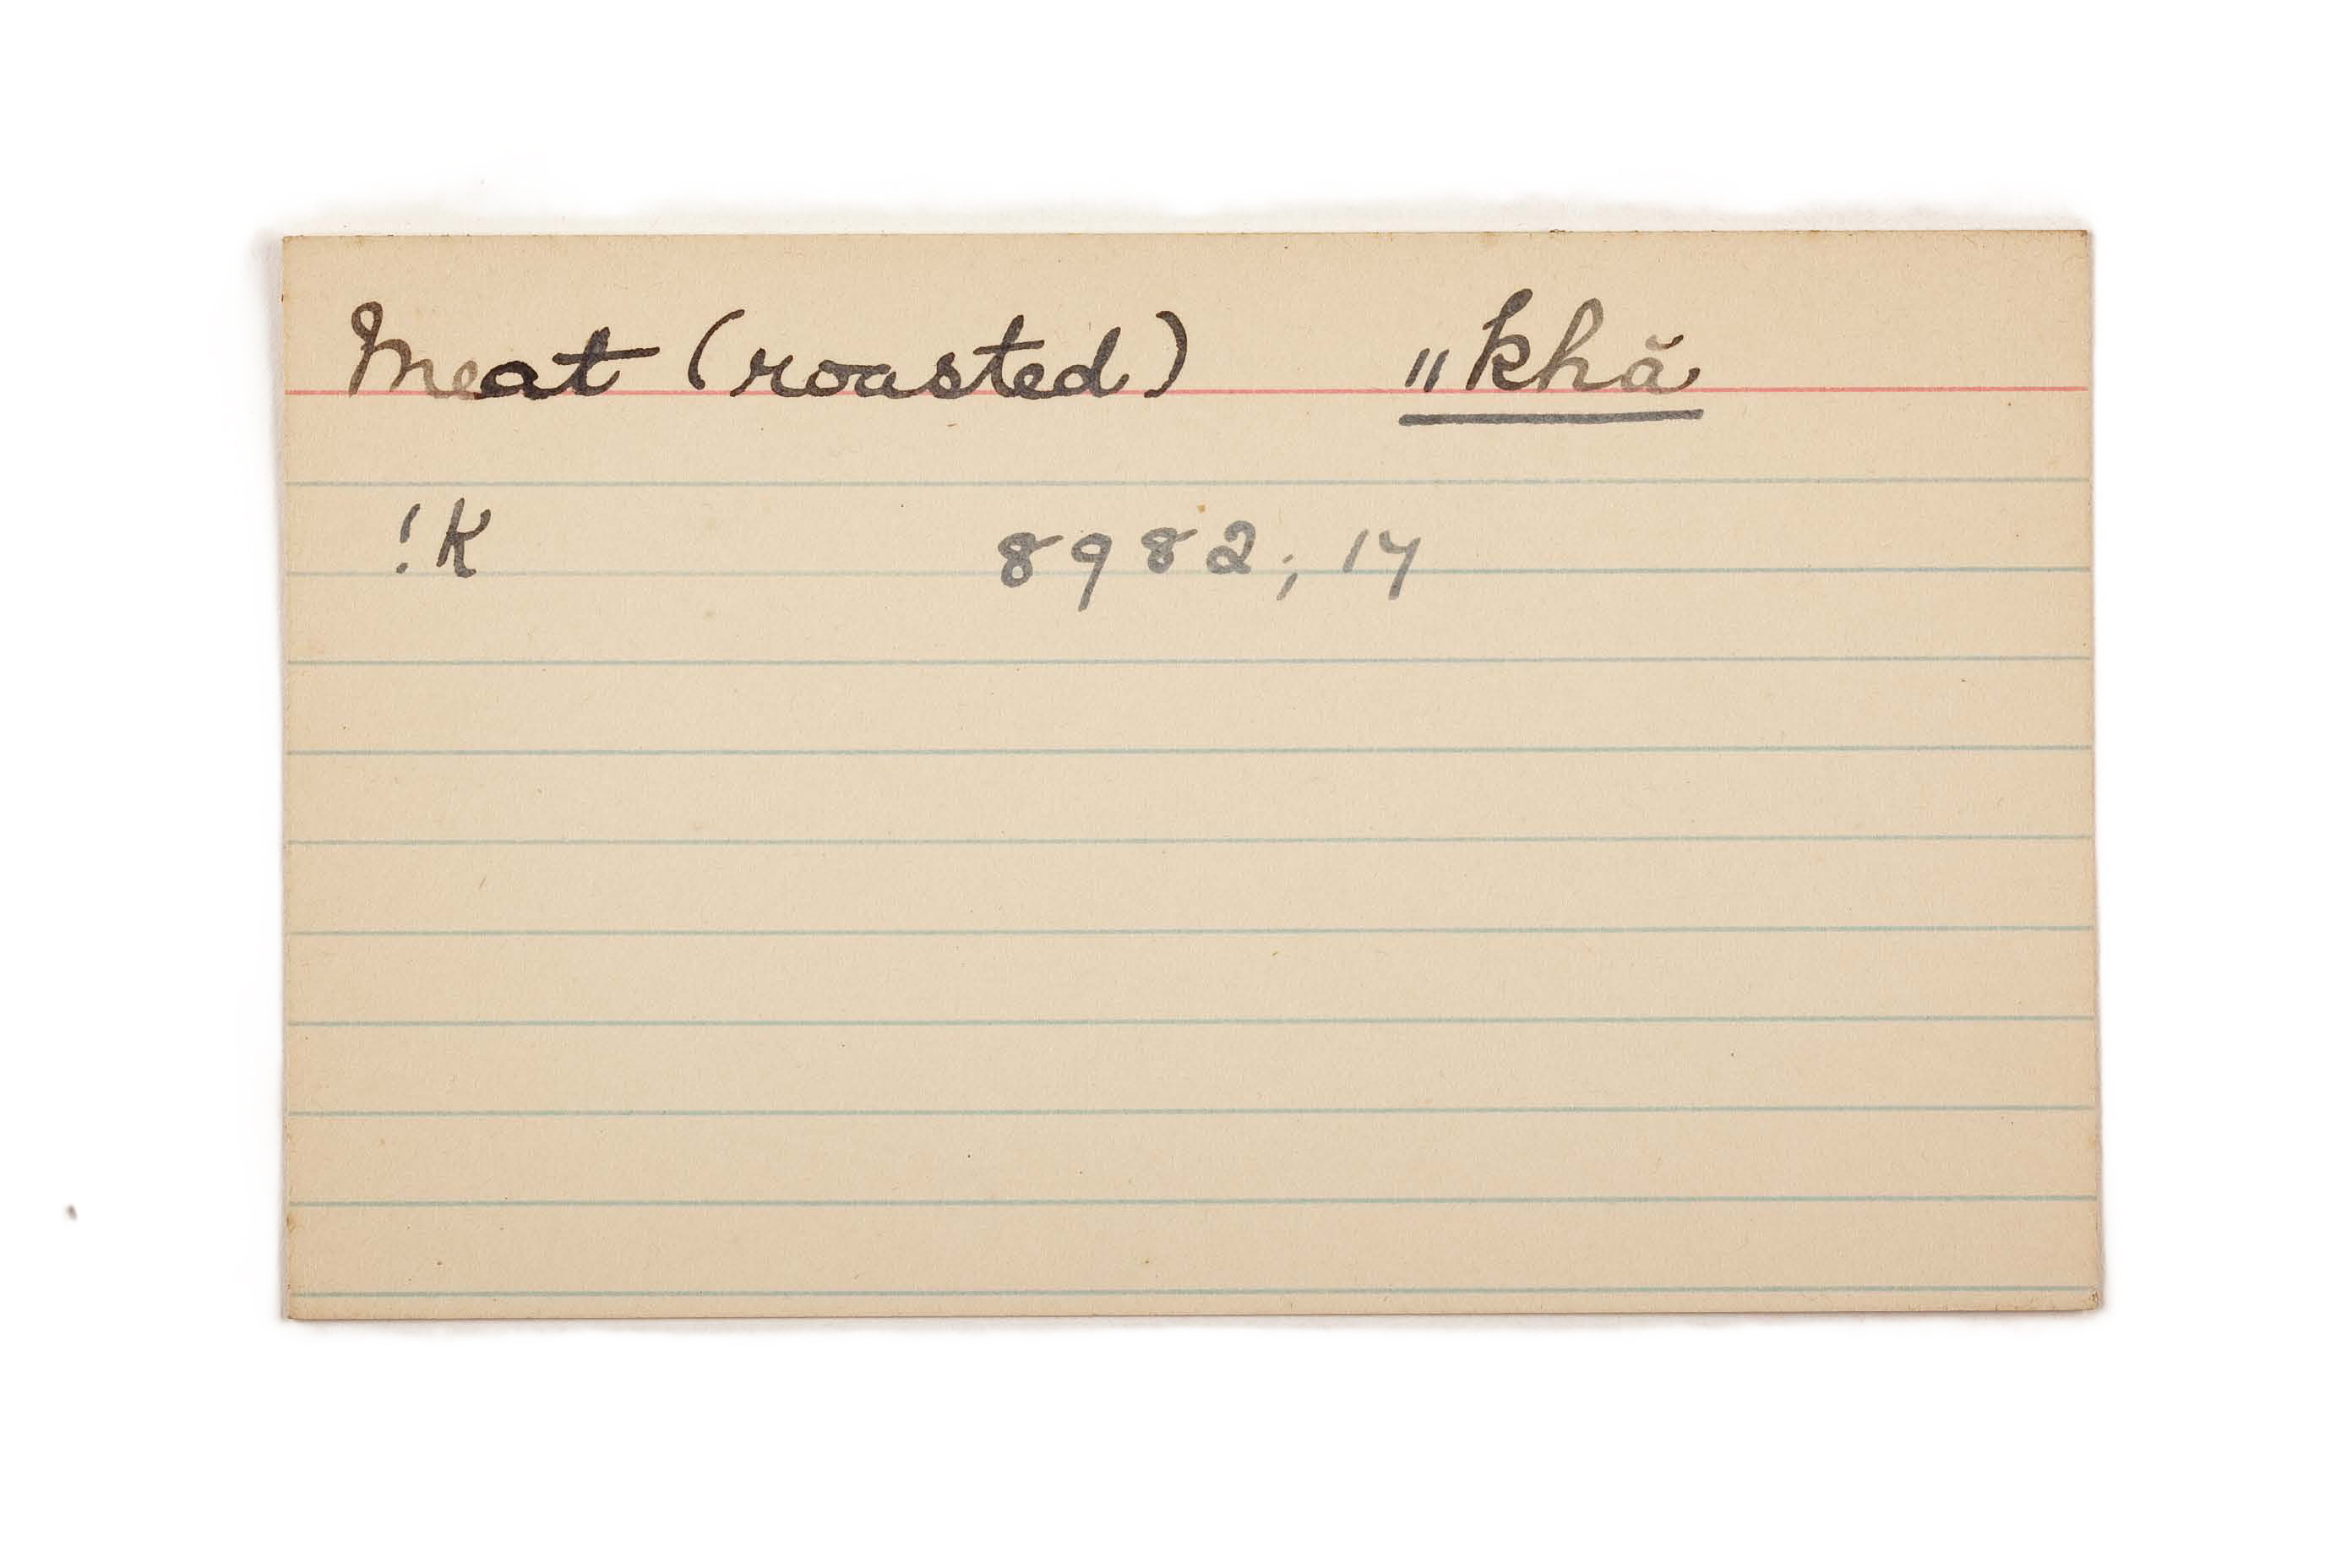 Meat (roasted) ǁkhă
!k 8982; 17